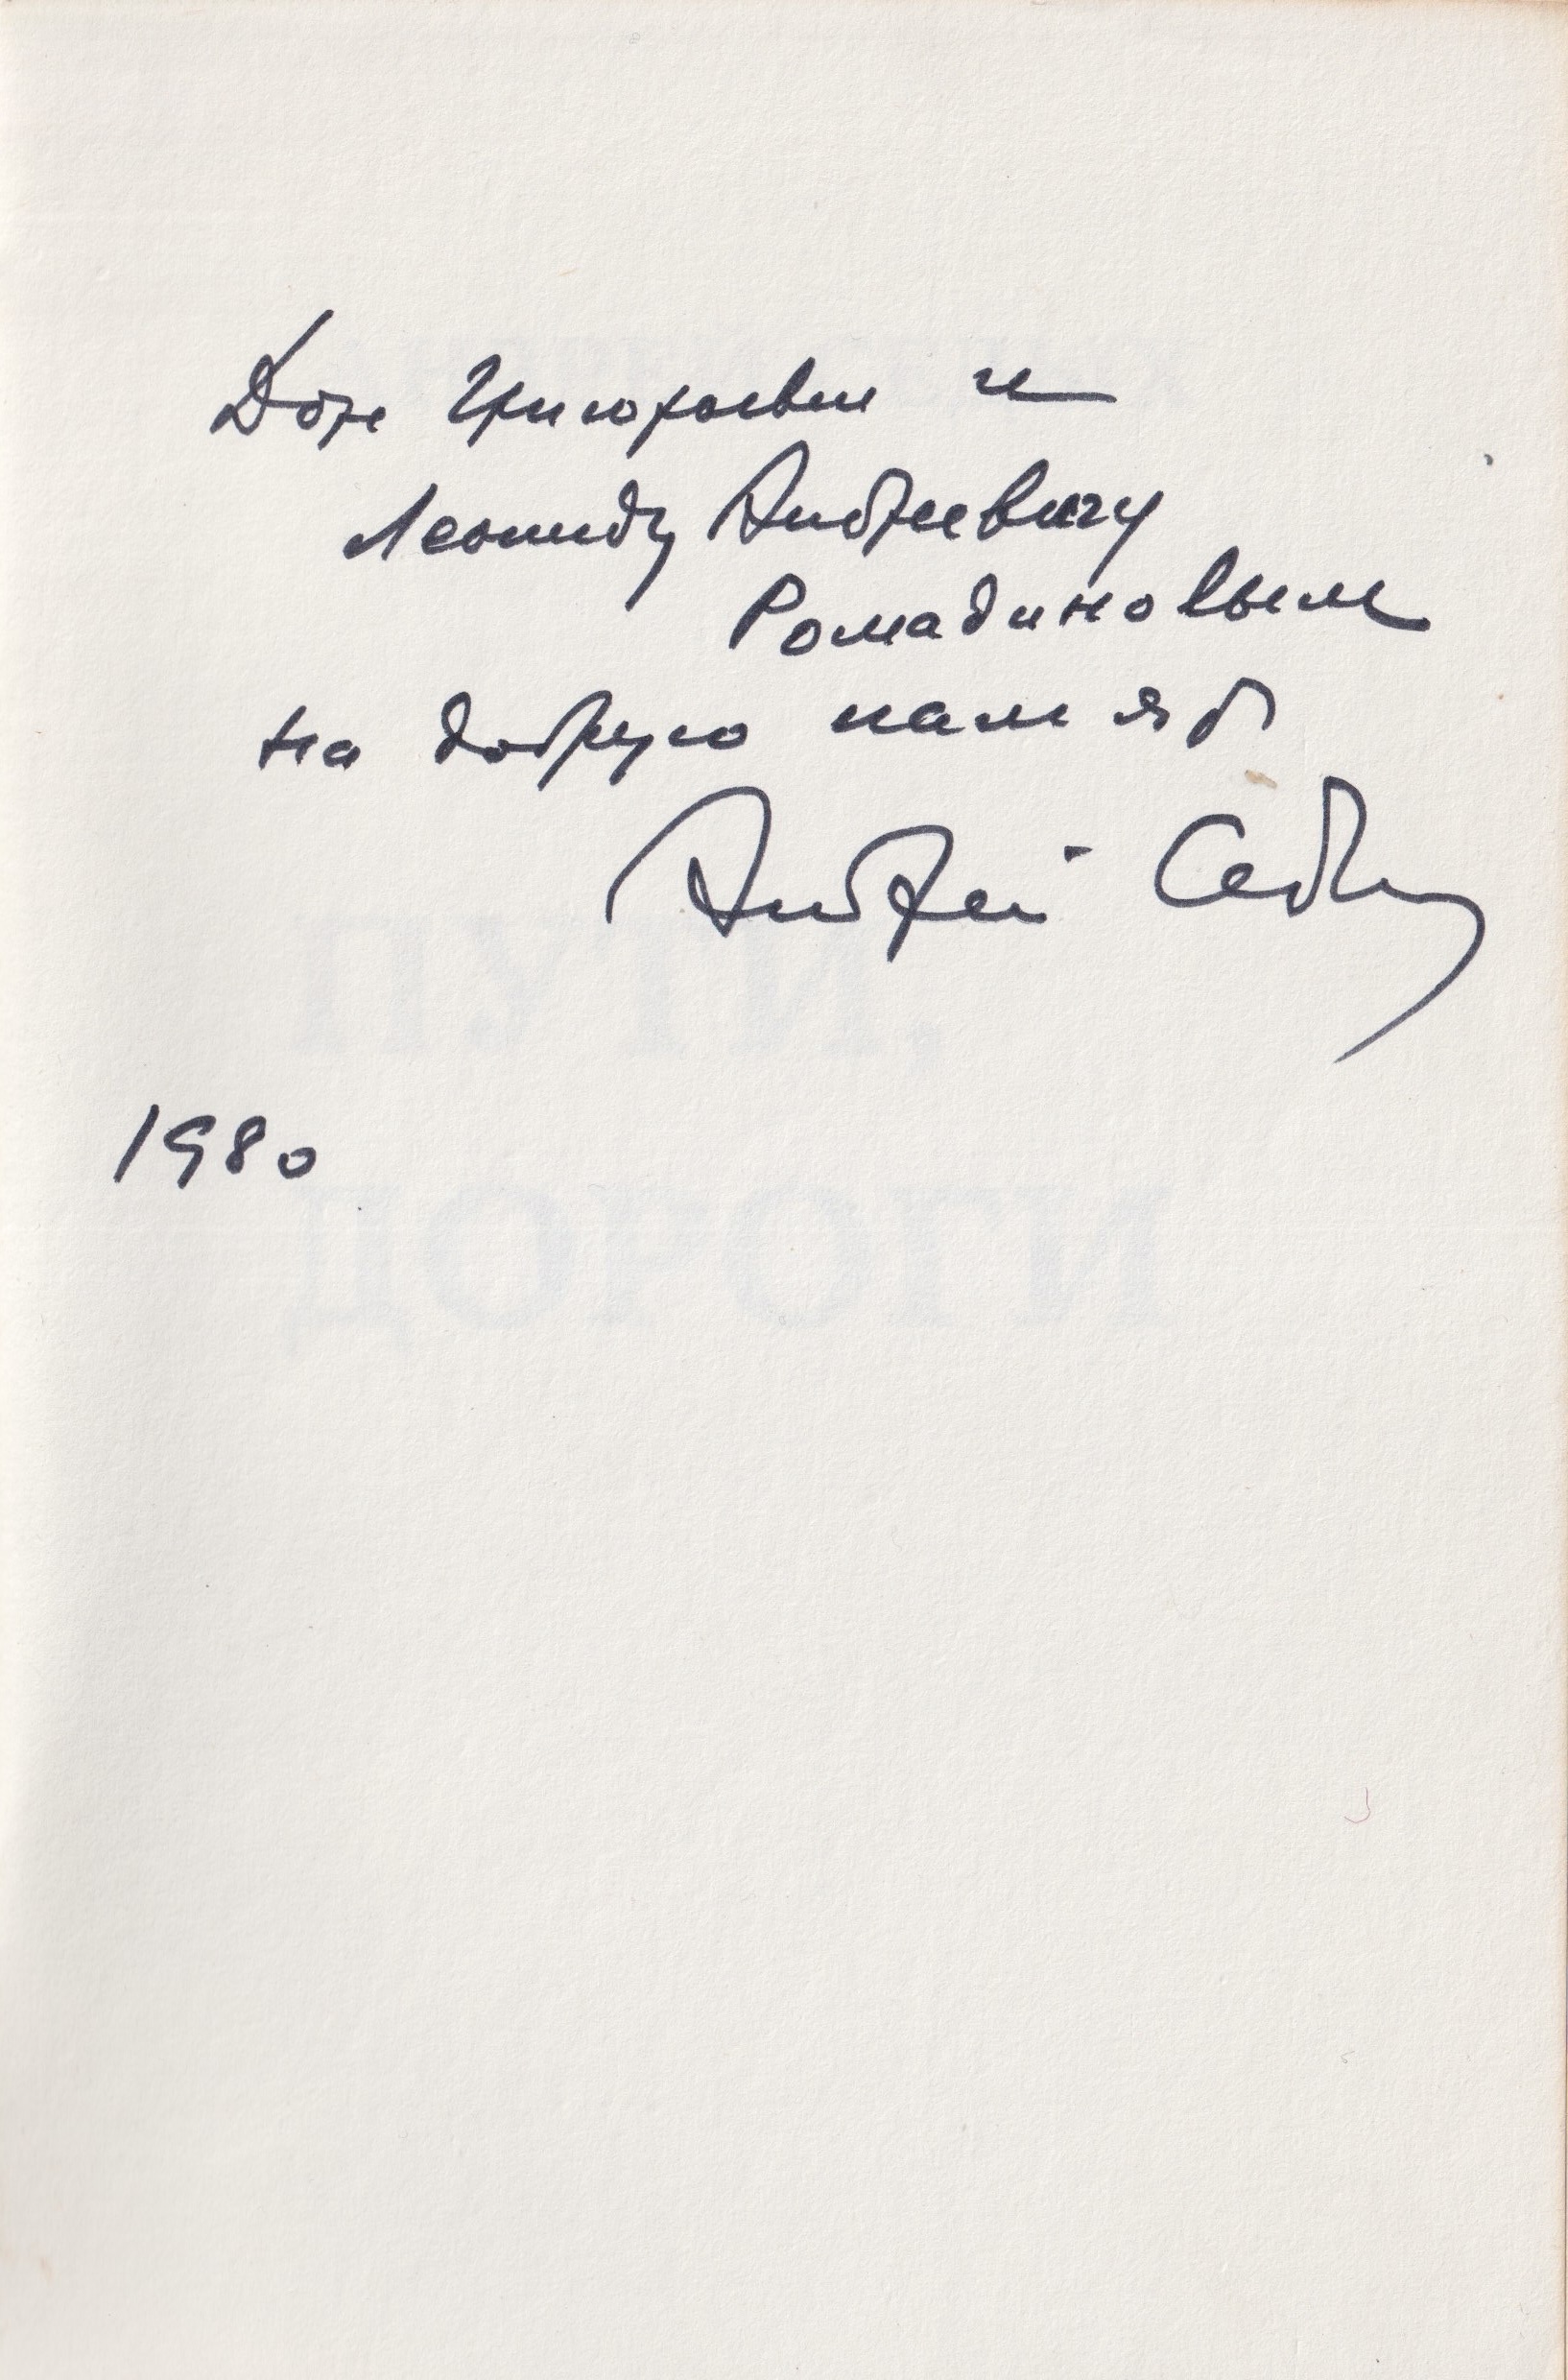 Доре Григорьевне и
Леониду Андреевичу
Ромадиновым
на добрую память
Андрей Седых
ПУТИ,
ДОРОГИ
1980